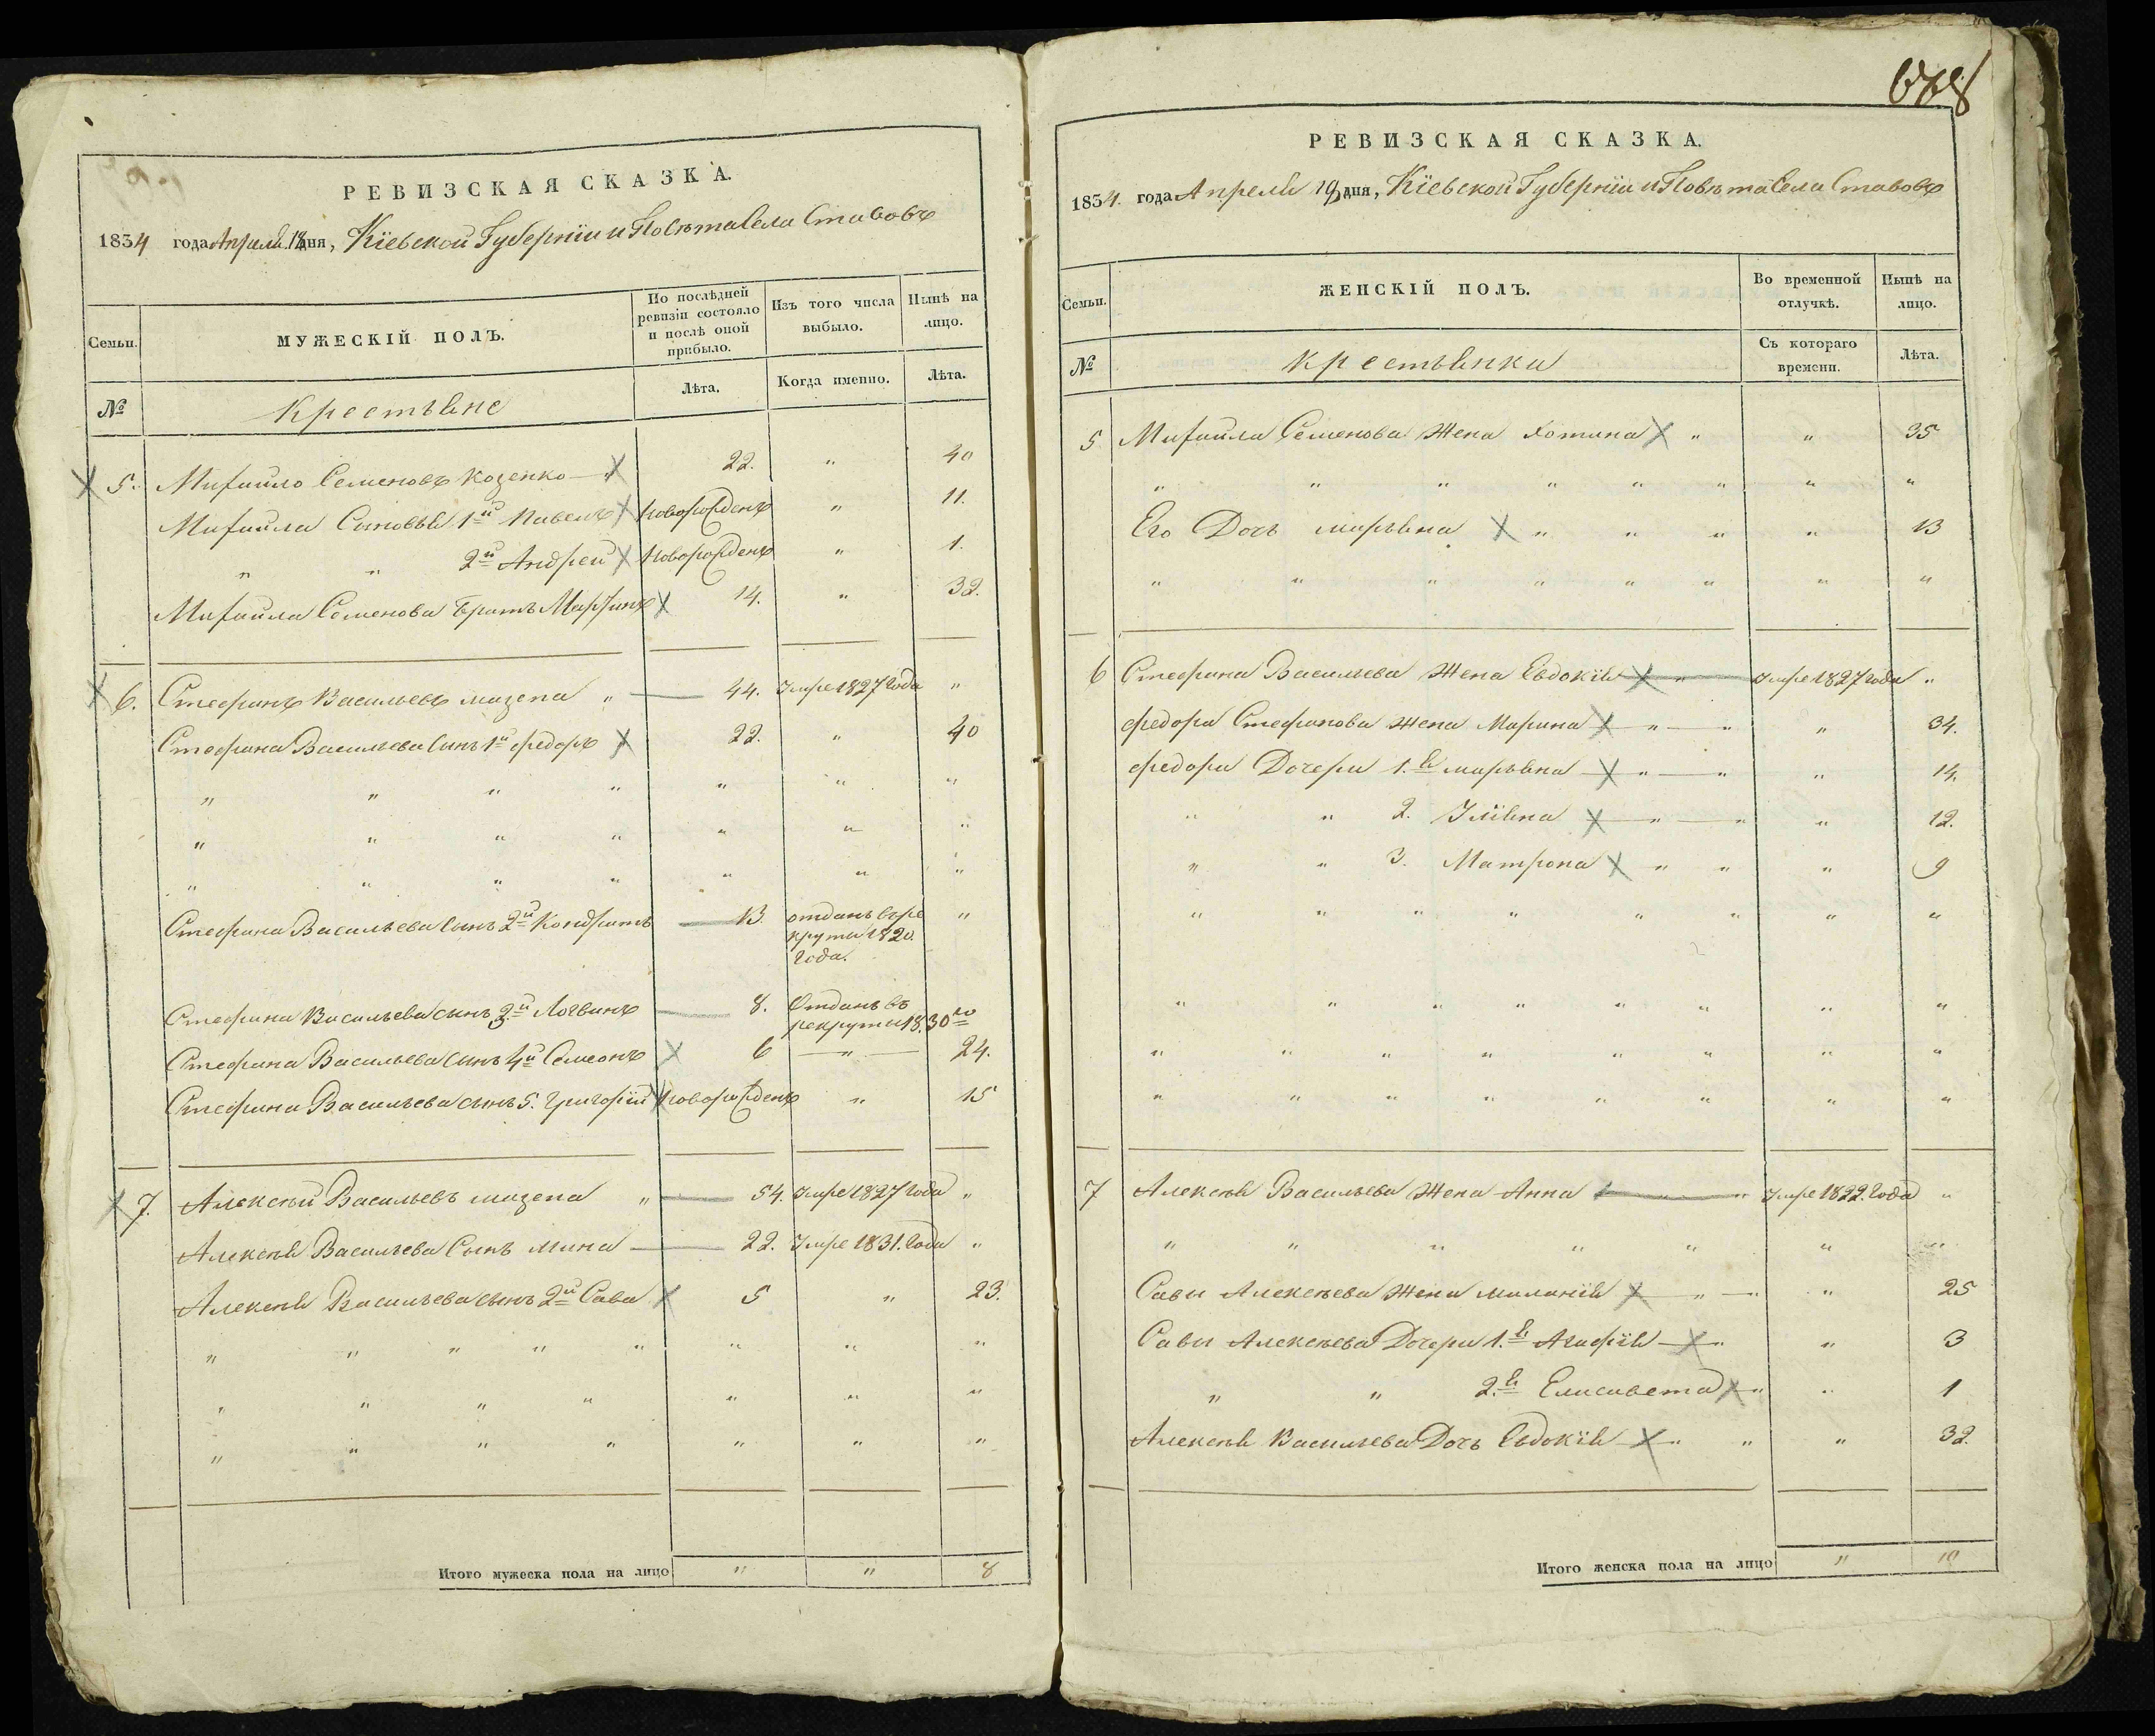 РЕВИЗСКАЯ СКАЗКА.
1834 года Апреля 18 дня, Кіевской Губерніи и Повѣта Села Ставовъ
Семьи. МУЖЕСКІЙ ПОЛЪ. По послѣдней ревизіи состояло и послѣ оной прибыло. Изъ того числа выбыло. Нынѣ на лицо.
№ Крестьяне Лѣта. Когда именно. Лѣта.
5. Михайло Семеновъ Козенко 22. " 40
Михайла Сыновья 1й Павелъ новорожденъ " 11.
" " 2й Андрей новорожденъ " 1.
Михайла Семенова Братъ 14. " 32.
6. Стефанъ Васильевъ мазепа " 44. Умре 1827 Года "
Стефана Васильева Сынъ 1й Федоръ 22. " 40
" " " " " " "
" " " " " " "
" " " " " " "
Стефана Васильева Сынъ 2й Кондратъ 13. отданъ въ ре
круты 1820.
Года. "
Стефана Васильева сынъ 3й Логвинъ 8. Отданъ въ
рекруты 1830го
Стефана Васильева Сынъ 4й Семеонъ 6 " 24.
Стефана Васильева сынъ 5. Григорій новорожденъ " 15
7. Алексѣй Васильевъ мазепа " 54. Умре 1827 Года "
Алексѣя Васильева Сынъ мина 22. Умре 1831. Года "
Алексѣя Васильева сынъ 2й Сава 5 " 23.
" " " " " " " "
" " " " " " "
" " " " " " "
Итого мужеска пола на лицо " " 8
668
РЕВИЗСКАЯ СКАЗКА.
1834. года Апреля 19 дня, Кіевской Губерніи и Повѣта Села Ставовъ
Семьи. ЖЕНСКІЙ ПОЛЪ. Во временной отлучкѣ. Нынѣ на лицо.
№ Крестьянки Съ котораго времени. Лѣта.
5 Михайла Семенова Жена Хотина " " 35
" " " " " " " "
Его Дочь марьяна " " " " 13
" " " " " " " "
6 Стефана Васильева Жена Евдокія " Умре 1827 года "
Федора Стефанова жена Марина " " " 34.
Федора Дочери 1.я марьяна " " " 14.
" " 2. Уліяна " " " 12.
" " 3. Матрона " " " 9
" " " " " " " "
" " " " " " " "
" " " " " " " "
" " " " " " " "
7 Алексѣя Васильева Жена Анна " " Умре 1822. Года "
" " " " " " "
Савы Алексѣева Жена маланія " " " 25
Савы Алексѣева Дочери 1.я Агафія " " 3
" " 2.я Елисавета " " 1
Алексѣя Васильева Дочь Евдокія " " " 32.
Итого женска пола на лицо " 10